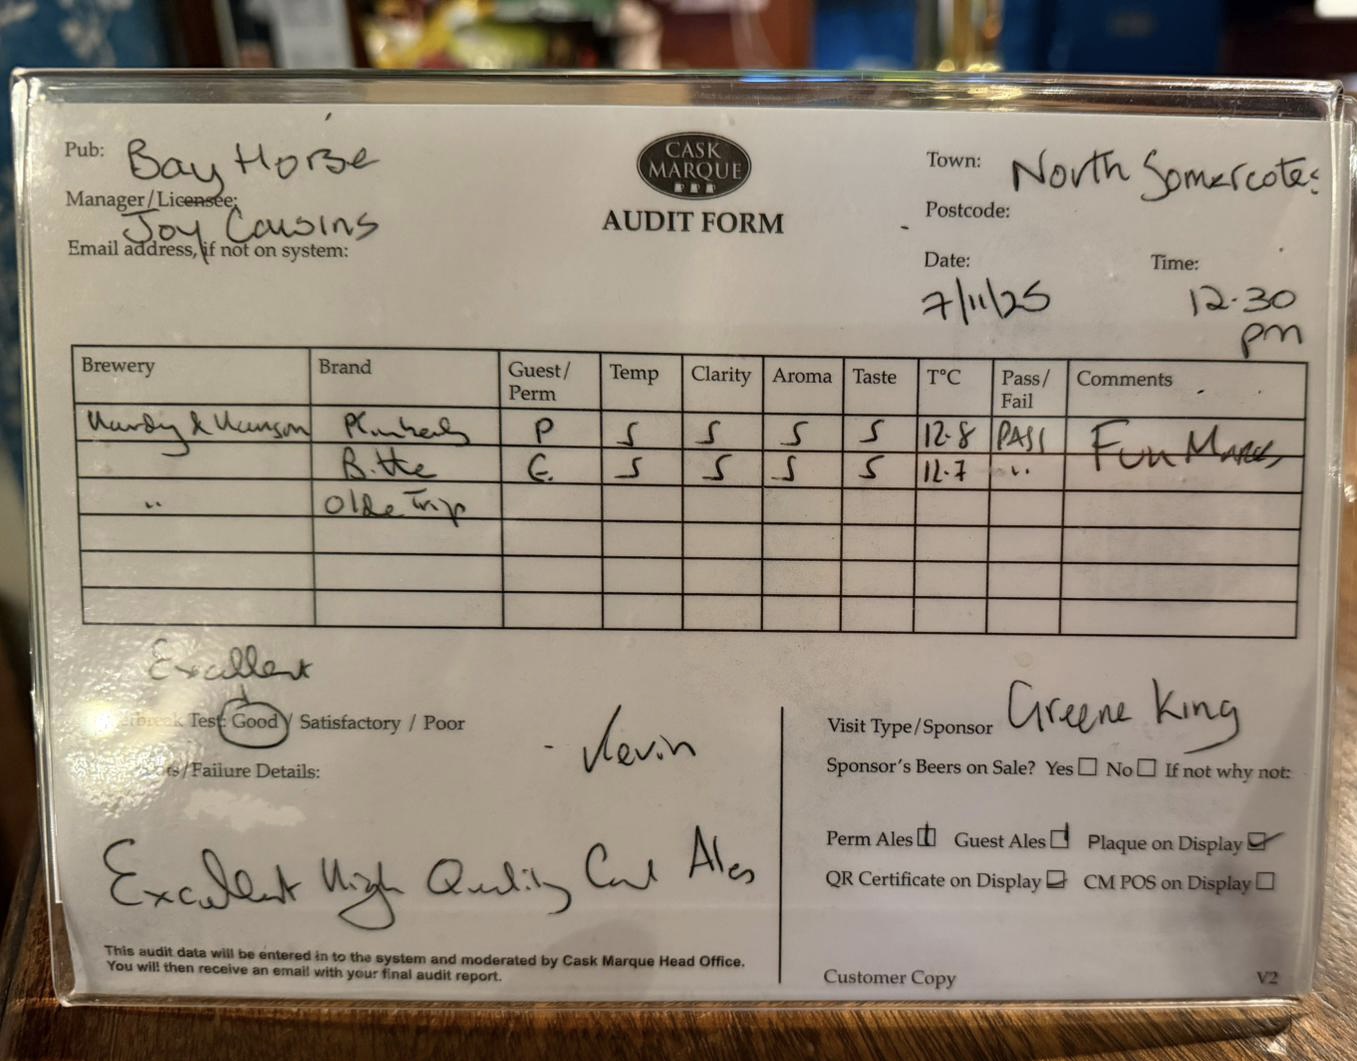 Pub: Bay Horse
CASK
MARQUE
AUDIT FORM
Town: North Somercotes
Manager/Licensee: Joy Cousins
Postcode:
Email address, if not on system:
Date: 7/11/25
Time: 12.30 pm
Brewery Brand Guest/Perm Temp Clarity Aroma Taste T°C Pass/Fail Comments
Hardy & Hanson P 5 5 5 5 12.8 PASS Full Marks
G. 5 5 5 5 12.7 "
" Olde Trip
Excellent
Test: Good / Satisfactory / Poor
Kevin
/Failure Details:
Excellent High Quality Ales
This audit data will be entered in to the system and moderated by Cask Marque Head Office.
You will then receive an email with your final audit report.
Visit Type/Sponsor Greene King
Sponsor's Beers on Sale? Yes No If not why not:
Perm Ales 1 Guest Ales 1 Plaque on Display ✓
QR Certificate on Display CM POS on Display
Customer Copy V2